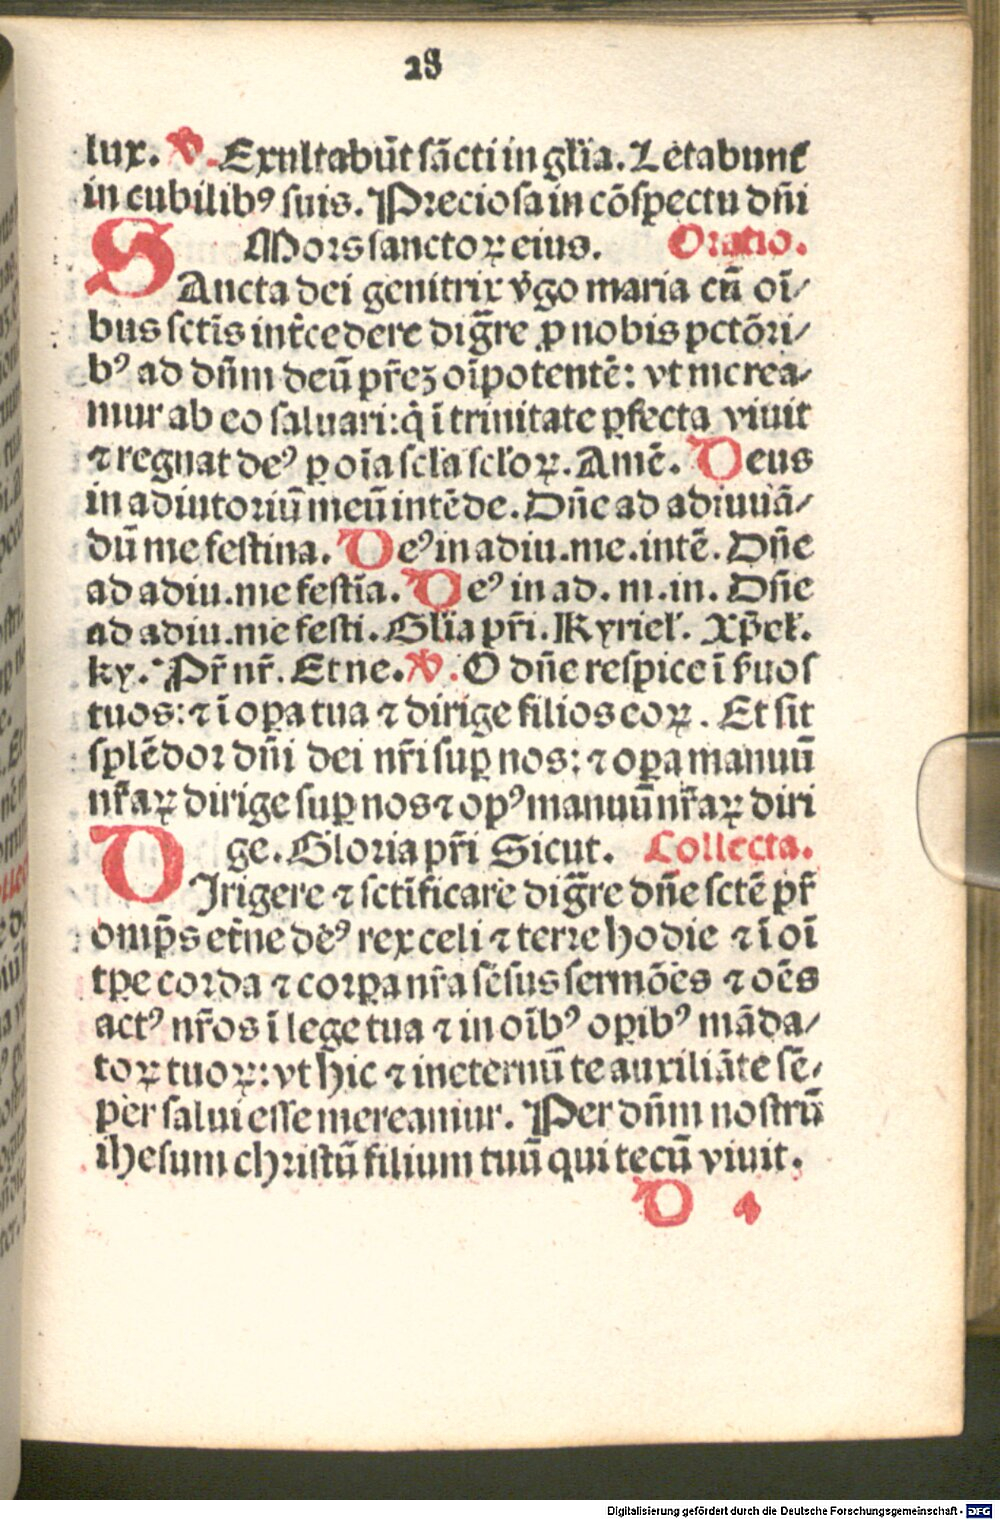 28
lux. ℣. Exultabūt sācti in gl̄ia. Letabunt
in cubilibꝰ suis. Preciosa in cōspectu dn̄i
Mors sanctoꝝ eius. Oratio.
SAncta dei genitrix v̄go maria cū oī⸗
bus sctīs int̄cedere diḡre ꝓ nobis pctōri⸗
bꝰ ad dn̄m deū pr̄eꝫ oīpotentē: vt merea⸗
mur ab eo saluari: q̇ ī trinitate ꝑfecta viuit
⁊ regnat deꝰ ꝑ oīa scl̄a scl̄oꝝ. Amē. Deus
in adiutoriū meū intēde. Dn̄e ad adiuuā⸗
dū me festina. Deꝰ in adiu.me.intē. Dn̄e
ad adiu.me festīa. Deꝰ in ad. m.in. Dn̄e
ad adiu.me festi. Gl̄ia pr̄i. Kyriel̄. Xp̄el̄.
ky. Pr̄ nr̄. Et ne. ℣. O dn̄e respice ī s̄uos
tuos: ⁊ ī oꝑa tua ⁊ dirige filios eoꝝ. Et sit
splēdor dn̄i dei nr̄i suꝑ nos: ⁊ oꝑa manuū
nr̄aꝝ dirige suꝑ nos ⁊ opꝰ manuū nr̄aꝝ diri
ge. Gloria pr̄i Sicut. Collecta.
DIrigere ⁊ sctīficare diḡre dn̄e sctē pr̄
omp̄s et̄ne dēꝰ rex celi ⁊ terre hodie ⁊ ī oī
tꝑe corda ⁊ corꝑa nr̄a sēsus sermōes ⁊ oēs
actꝰ nr̄os ī lege tua ⁊ in oībꝰ oꝑibꝰ māda⸗
toꝝ tuoꝝ: vt hic ⁊ in eternū te auxiliāte sē⸗
per salui esse mereamur. Per dn̄m nostrū
ihesum christū filium tuū qui tecū viuit.
D 4
Digitalisierung gefördert durch die Deutsche Forschungsgemeinschaft - DFG